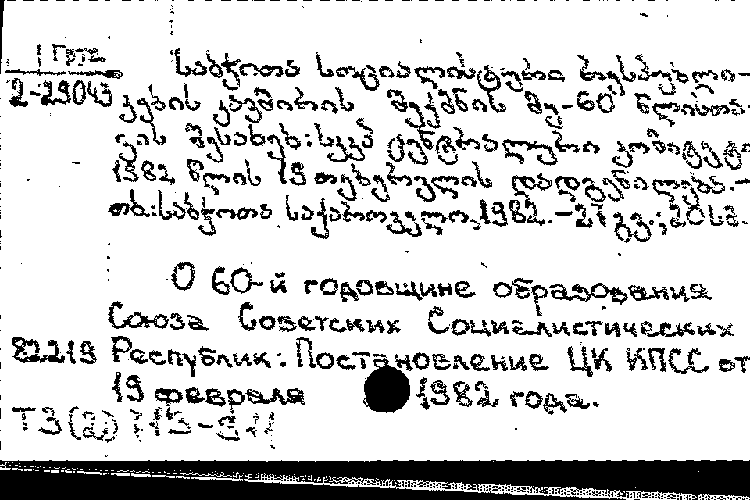 2-29043
საბჭოთა სოციალისტური რესპუბლი-
კების კავშირის შექმნის მე-60 წლისთა-
ვის შესახებ: სკკპ ცენტრალური კომიტეტი
1982 წლის 19 თებერვლის დადგენილება.–
თბ.: საბჭოთა საქართველო, 1982.–27 გვ.; 20სმ.
О 60-й годовщине образования
Союза Советских Социалистических
82219 Республик: Постановление ЦК КПСС от
19 февраля 1982 года.